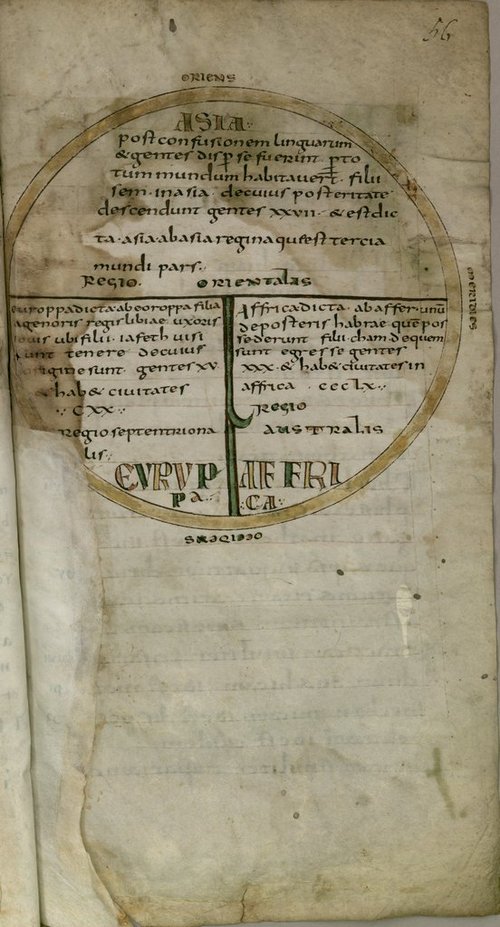 56
ORIENS
ASIA
post confusionem linguarum
& gentes disp se fuerint p to
tum mundum habitavert. filii
sem · in asia · de cuius posteritate
descendunt gentes xxvii · & est dic
ta · asia · ab asia regina que est tercia
mundi pars ·
REGIO · ORIENTALIS
europpa dicta · ab eoroppa filia
agenoris regis libiae uxoris
iovis ubi filii · iafeth visi
sunt tenere de cuius
origine sunt · gentes xv
& hab& civitates
· CXX ·
Regio septentriona
lis ·
EVRVP
PA
Affrica dicta · ab affer · unu
de posteris habrae · que pos
sederunt filii · cham de quem
sunt egresse gentes
xxx · & hab& civitates in
affrica · ccclx ·
REGIO
AUSTRALIS
AFFRI
CA
MERIDIES
OCCIDENS